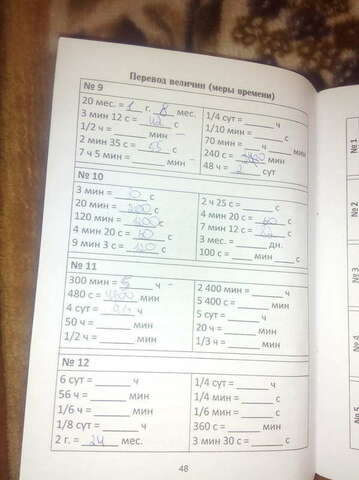 Перевод величин (меры времени)
№ 9
20 мес. = 1 г. 8 мес.
3 мин 12 с = ____ с
1/2 ч = ____ мин
2 мин 35 с = ____ с
7 ч 5 мин = ____ мин
1/4 сут = ____ ч
1/10 мин = ____ с
70 мин = ____ ч ____ мин
240 с = ____ мин
48 ч = 2 сут
№ 10
3 мин = ____ с
20 мин = ____ с
120 мин = ____ с
4 мин 20 с = ____ с
9 мин 3 с = ____ с
2 ч 25 с = ____ с
4 мин 20 с = ____ с
7 мин 12 с = ____ с
3 мес. = ____ дн.
100 с = ____ мин ____ с
№ 11
300 мин = 5 ч
480 с = ____ мин
4 сут = ____ ч
50 ч = ____ мин
1/2 ч = ____ мин
2 400 мин = ____ ч
5 400 с = ____ мин
5 сут = ____ ч
20 ч = ____ мин
1/3 ч = ____ мин
№ 12
6 сут = ____ ч
56 ч = ____ мин
1/6 ч = ____ мин
1/8 сут = ____ ч
2 г. = 24 мес.
1/4 сут = ____ ч
1/4 мин = ____ с
1/6 мин = ____ с
360 с = ____ мин
3 мин 30 с = ____ с
48
№ 1
№ 2
№ 3
№ 4
№ 5